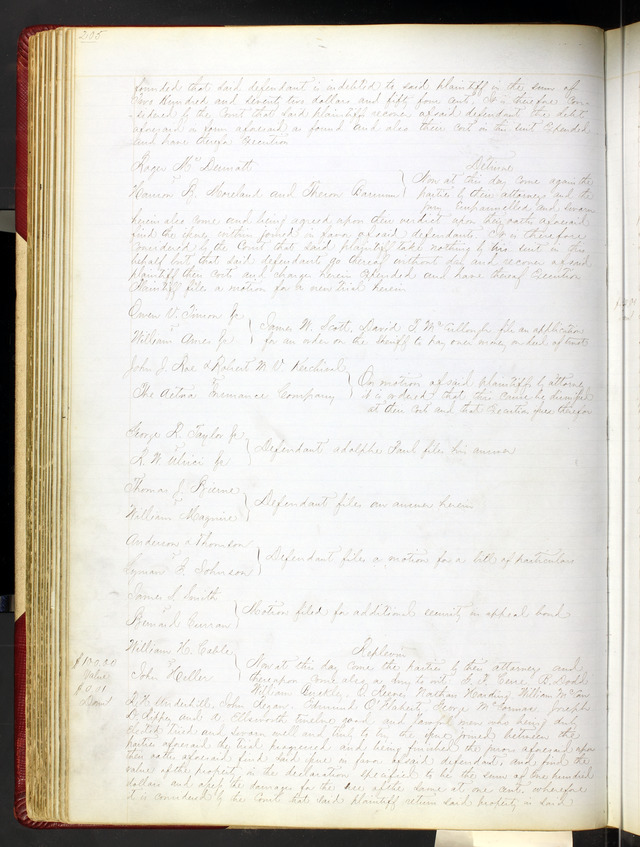 205
founded that said defendant is indebted to said plaintiff in the sum of
two hundred and seventy two dollars and fifty four cents. It is therefore Con-
sidered by the Court that said plaintiff recover of said defendant the debt
aforesaid in form aforesaid as found and also their cost in this suit Expended
and have thereof Execution
Roger McDermott
vs
Harrison P. Moreland and Theron Barnum
Detinue
Now at this day come again the
parties by their attorneys and the
jury Empannelled and sworn
herein also come and being agreed upon their verdict upon their oaths aforesaid
find the issues within joined in favor of said defendants. It is therefore
Considered by the Court that said plaintiff take nothing by his suit in this
behalf but that said defendants go thereof without day and recover of said
plaintiff their costs and charges herein Expended and have thereof Execution
Plaintiff files a motion for a new trial herein
Owen V. Timon Jr
vs
William Ames Jr
James W. Scott, David T. McCullough file an application
for an order on the Sheriff to pay over money made of
John J. Roe & Robert M.
vs
The Aetna Insurance Company
On motion of said plaintiffs by attorney
it is ordered that this cause be dismissed
at their cost and that Execution issue therefor
George R. Taylor Jr
vs
R. W. Ulrici Jr
Defendant Adolphe Paul files his answer
Thomas J. Bierne
vs
William Maguire
Defendant files an answer herein
Anderson & Thomson
vs
Lyman F. Johnson
Defendant files a motion for a bill of particulars
James S. Smith
vs
Bernard Curran
Motion filed for additional security on appeal bond
William H. Cable
vs
John Heller
$100.00
Value
$0.01
Dam
Replevin
Now at this day come the parties by their attorneys and
thereupon come also a jury to wit B. Dodd
William O. Keene, Nathan Harding, William
R. H. Underhill, John Regan, Edmund O'Flahert, George McCormac, Joseph
and Ellsworth twelve good and lawful men who being duly
elected tried and sworn well and truly to try the issue joined between the
parties aforesaid the trial progressed and being finished the jurors aforesaid upon
their oaths aforesaid find said issue in favor of said defendant, and find the
value of the property in the declaration specified to be the sum of One hundred
dollars and assess the damages for the use of the same at one cent, wherefore
it is considered by the Court that said plaintiff return said property in said